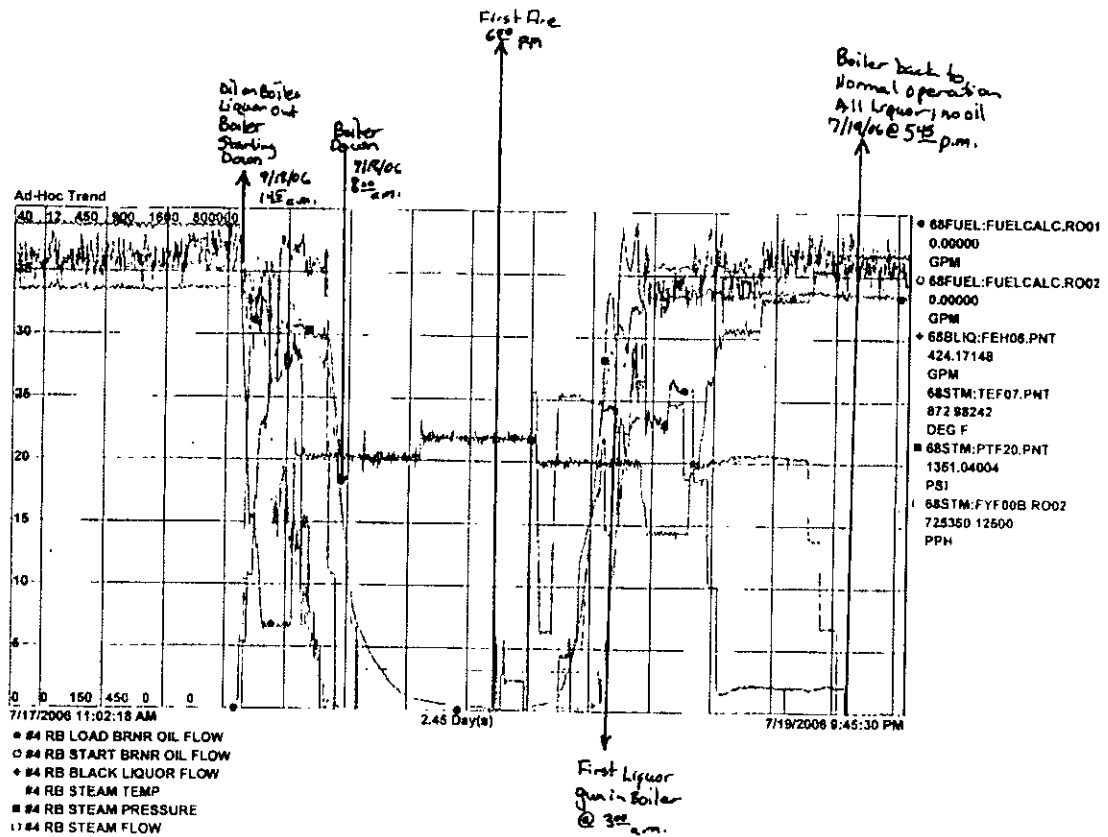 First Fire
6:00 pm
Oil on Boiler
Liquor out
Boiler
Starting
Down
9/18/06
1:45 a.m.
Boiler
Down
7/18/06
8:00
a.m.
Boiler back to
Normal operation
All Liquor, no oil
7/19/06 @ 5:45 p.m.
Ad-Hoc Trend
40 12 450 900 1600 800000
35
30
25
20
15
10
5
0 0 150 450 0 0
7/17/2006 11:02:18 AM
2.45 Day(s)
7/19/2006 9:45:30 PM
68FUEL:FUELCALC.RO01
0.00000
GPM
68FUEL:FUELCALC.RO02
0.00000
GPM
68BLIQ:FEH06.PNT
424.17148
GPM
68STM:TEF07.PNT
872.98242
DEG F
68STM:PTF20.PNT
1351.04004
PSI
68STM:FYF00B.RO02
725350.12500
PPH
#4 RB LOAD BRNR OIL FLOW
#4 RB START BRNR OIL FLOW
#4 RB BLACK LIQUOR FLOW
#4 RB STEAM TEMP
#4 RB STEAM PRESSURE
#4 RB STEAM FLOW
First Liquor
gun in Boiler
@ 3:00
a.m.